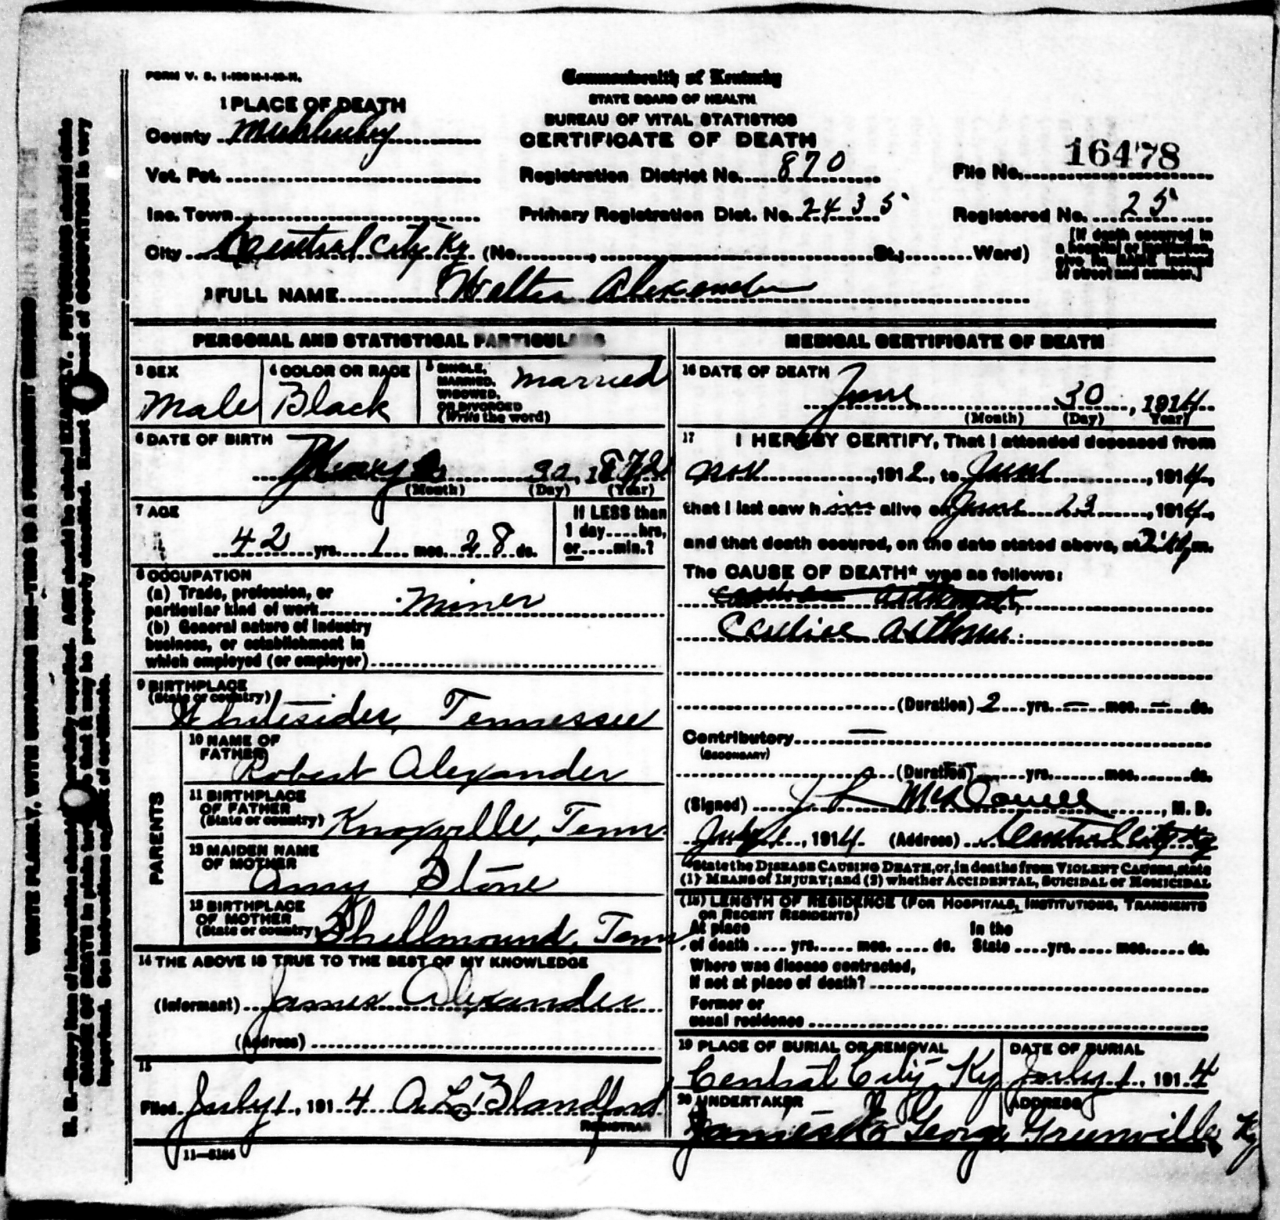 FORM V. S. 1-
Commonwealth of Kentucky
STATE BOARD OF HEALTH
BUREAU OF VITAL STATISTICS
CERTIFICATE OF DEATH
1 PLACE OF DEATH
County Muhlenberg
Vot. Pct.
Registration District No. 870
File No. 16478
Inc. Town
Primary Registration Dist. No. 2435
Registered No. 25
City Central City Ky (No. , St.; Ward)
[If death occurred in
a hospital or institution,
give its NAME instead
of street and number.]
2 FULL NAME Walter Alexander
PERSONAL AND STATISTICAL PARTICULARS
3 SEX
Male
4 COLOR OR RACE
Black
5 SINGLE,
MARRIED,
WIDOWED,
OR DIVORCED
(Write the word)
Married
6 DATE OF BIRTH
30, 1872
(Month) (Day) (Year)
7 AGE
42 yrs. 1 mos. 28 ds.
If LESS than
1 day, hrs,
or min.?
8 OCCUPATION
(a) Trade, profession, or
particular kind of work Miner
(b) General nature of industry
business, or establishment in
which employed (or employer)
9 BIRTHPLACE
(State or country)
Whitesides, Tennessee
PARENTS
10 NAME OF
FATHER
Robert Alexander
11 BIRTHPLACE
OF FATHER
(State or country) Knoxville, Tenn.
12 MAIDEN NAME
OF MOTHER
Amy Stone
13 BIRTHPLACE
OF MOTHER
(State or country) Shellmound, Tenn
14 THE ABOVE IS TRUE TO THE BEST OF MY KNOWLEDGE
(Informant) James Alexander
(Address)
15
Filed July 1, 1914 A. L. Blandford
REGISTRAR
11-5184
MEDICAL CERTIFICATE OF DEATH
16 DATE OF DEATH
June 30, 1914
(Month) (Day) (Year)
17 I HEREBY CERTIFY, That I attended deceased from
Nov , 1912, to June , 1914,
that I last saw him alive on June 23, 1914,
and that death occured, on the date stated above, at m.
The CAUSE OF DEATH* was as follows:
Cardiac Asthma
(Duration) 2 yrs. — mos. — ds.
Contributory —
(SECONDARY)
(Duration) yrs. mos. ds.
(Signed) J L McDowell, M. D.
July 1, 1914 (Address) Central City Ky
*State the DISEASE CAUSING DEATH, or, in deaths from VIOLENT CAUSES, state
(1) MEANS of INJURY; and (2) whether ACCIDENTAL, SUICIDAL or HOMICIDAL
(18) LENGTH OF RESIDENCE (FOR HOSPITALS, INSTITUTIONS, TRANSIENTS
OR RECENT RESIDENTS)
At place In the
of death yrs. mos. ds. State yrs. mos. ds.
Where was disease contracted,
If not at place of death?
Former or
usual residence
19 PLACE OF BURIAL OR REMOVAL
Central City, Ky
DATE OF BURIAL
July 1, 1914
20 UNDERTAKER
George
ADDRESS
Greenville, Ky
WRITE PLAINLY, WITH UNFADING INK—THIS IS A PERMANENT RECORD
N. B.—Every item of information should be carefully supplied. AGE should be stated EXACTLY. PHYSICIANS should state
CAUSE OF DEATH in plain terms, so that it may be properly classified. Exact statement of OCCUPATION is very
important. See instructions on back of certificate.